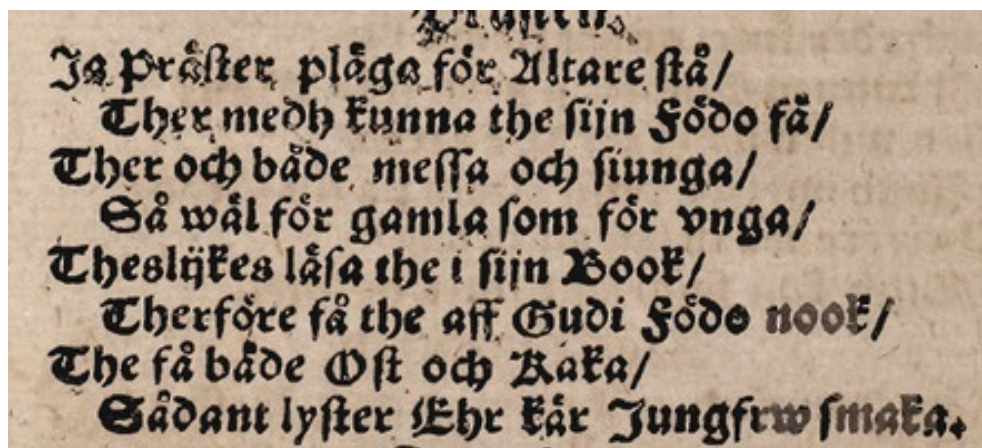 Ja Präster pläga för Altare stå/
Ther medh kunna the sijn Födo få/
Ther och både messa och siunga/
Så wäl för gamla som för vnga/
Theslijkes läsa the i sijn Book/
Therföre få the aff Gudi Födo nook/
The få både Ost och Kaka/
Sådant lyster Ehr kär Jungfrw smaka.